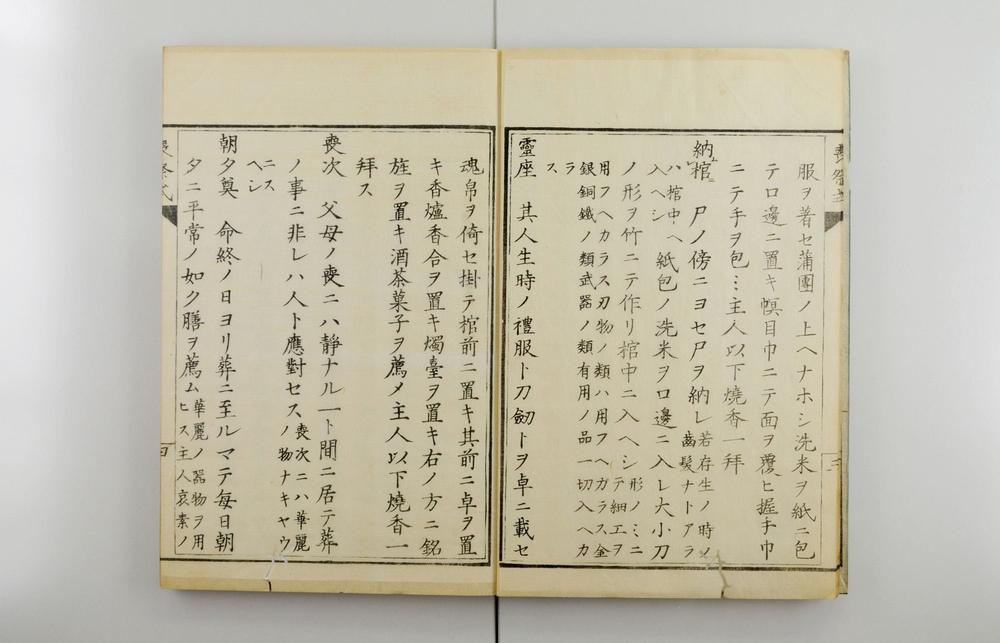 服ヲ著セ蒲團ノ上ヘナホシ洗米ヲ紙ニ包
テロ邊ニ置キ幎目巾ニテ面ヲ覆ヒ握手巾
ニテ手ヲ包ミ主人以下燒香一拜
納棺 尸ノ傍ニヨセ尸ヲ納レ
若存生ノ時ノ
齒髮ナトアラ
ハ棺中ヘ
入ヘシ
紙包ノ洗米ヲ口邊ニ入レ大小刀
ノ形ヲ竹ニテ作リ棺中ニ入ヘシ
形ノミニ
テ細工ヲ
用フヘカラス刃物ノ類ハ用フヘガラス金
銀銅鐵ノ類武器ノ類有用ノ品一切入ヘカ
ラ
ス
靈座 其人生時ノ禮服ト刀劒トヲ卓ニ載セ
魂帛ヲ倚セ掛テ棺前ニ置キ其前ニ卓ヲ置
キ香爐香合ヲ置キ燭臺ヲ置キ右ノ方ニ銘
旌ヲ置キ酒茶菓子ヲ薦メ主人以下燒香一
拜ス
喪次 父母ノ喪ニハ靜ナル一ト間ニ居テ葬
ノ事ニ非レハ人ト應對セス
喪次ニハ華麗
ノ物ナキヤウ
ニス
ヘシ
朝夕奠 命終ノ日ヨリ葬ニ至ルマテ每日朝
夕ニ平常ノ如ク膳ヲ薦ム
華麗ノ器物ヲ用
ヒス主人哀素ノ
喪祭式
四
喪祭
三